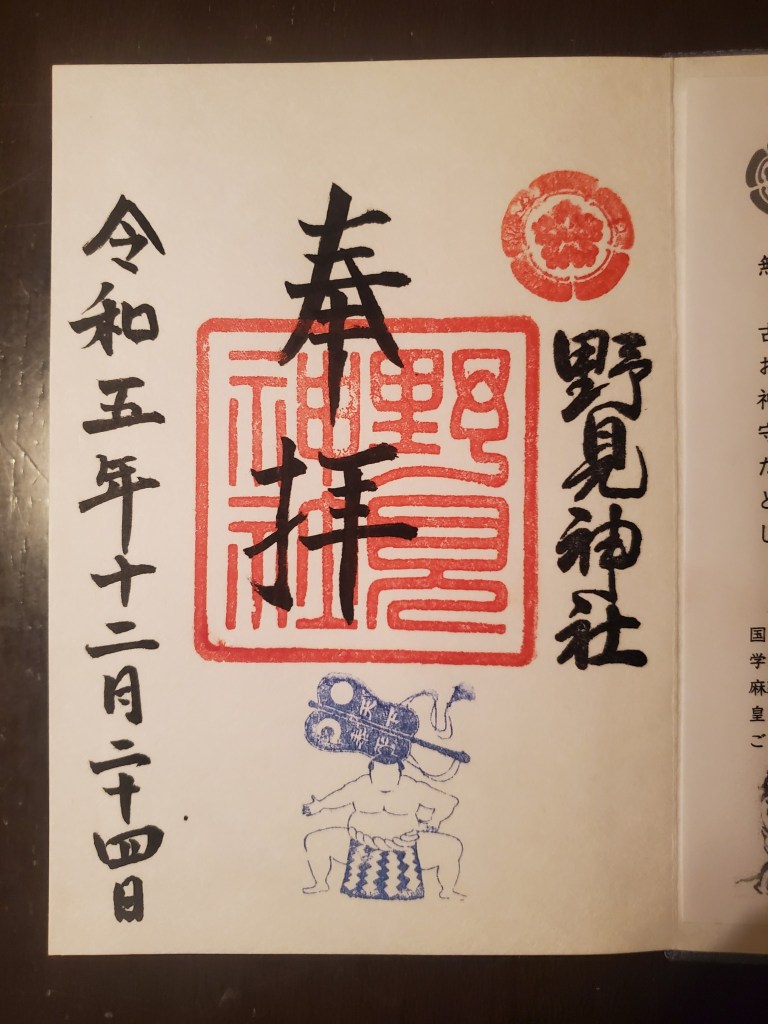 野見神社
奉拝
野見
神社
令和五年十二月二十四日
天下
泰平
古
お
神
守
と
し
国
学
麻
皇
ご